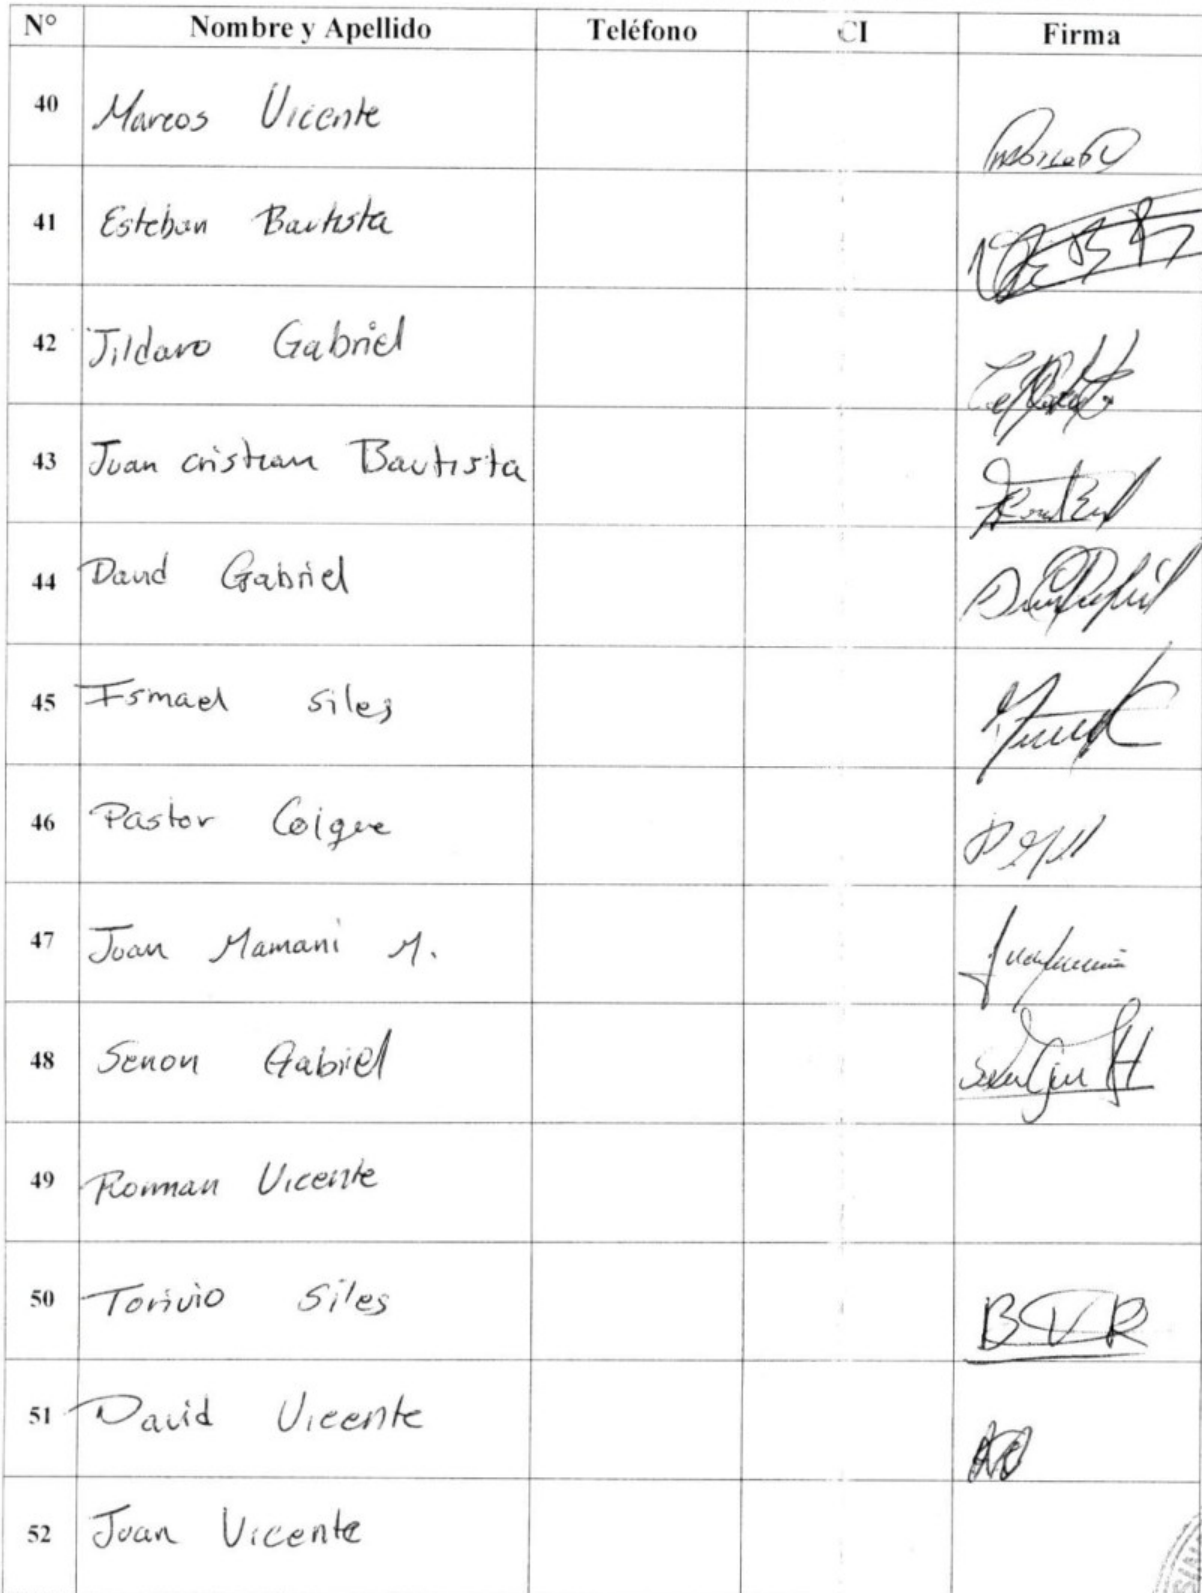 N° Nombre y Apellido Teléfono CI Firma
40 Marcos Vicente
41 Esteban Bautista
42 Jildaro Gabriel
43 Juan cristian Bautista
44 David Gabriel
45 Ismael Siles
46 Pastor Coigue
47 Juan Mamani M.
48 Senon Gabriel
49 Romman Vicente
50 Torivio Siles BVR
51 David Vicente
52 Juan Vicente